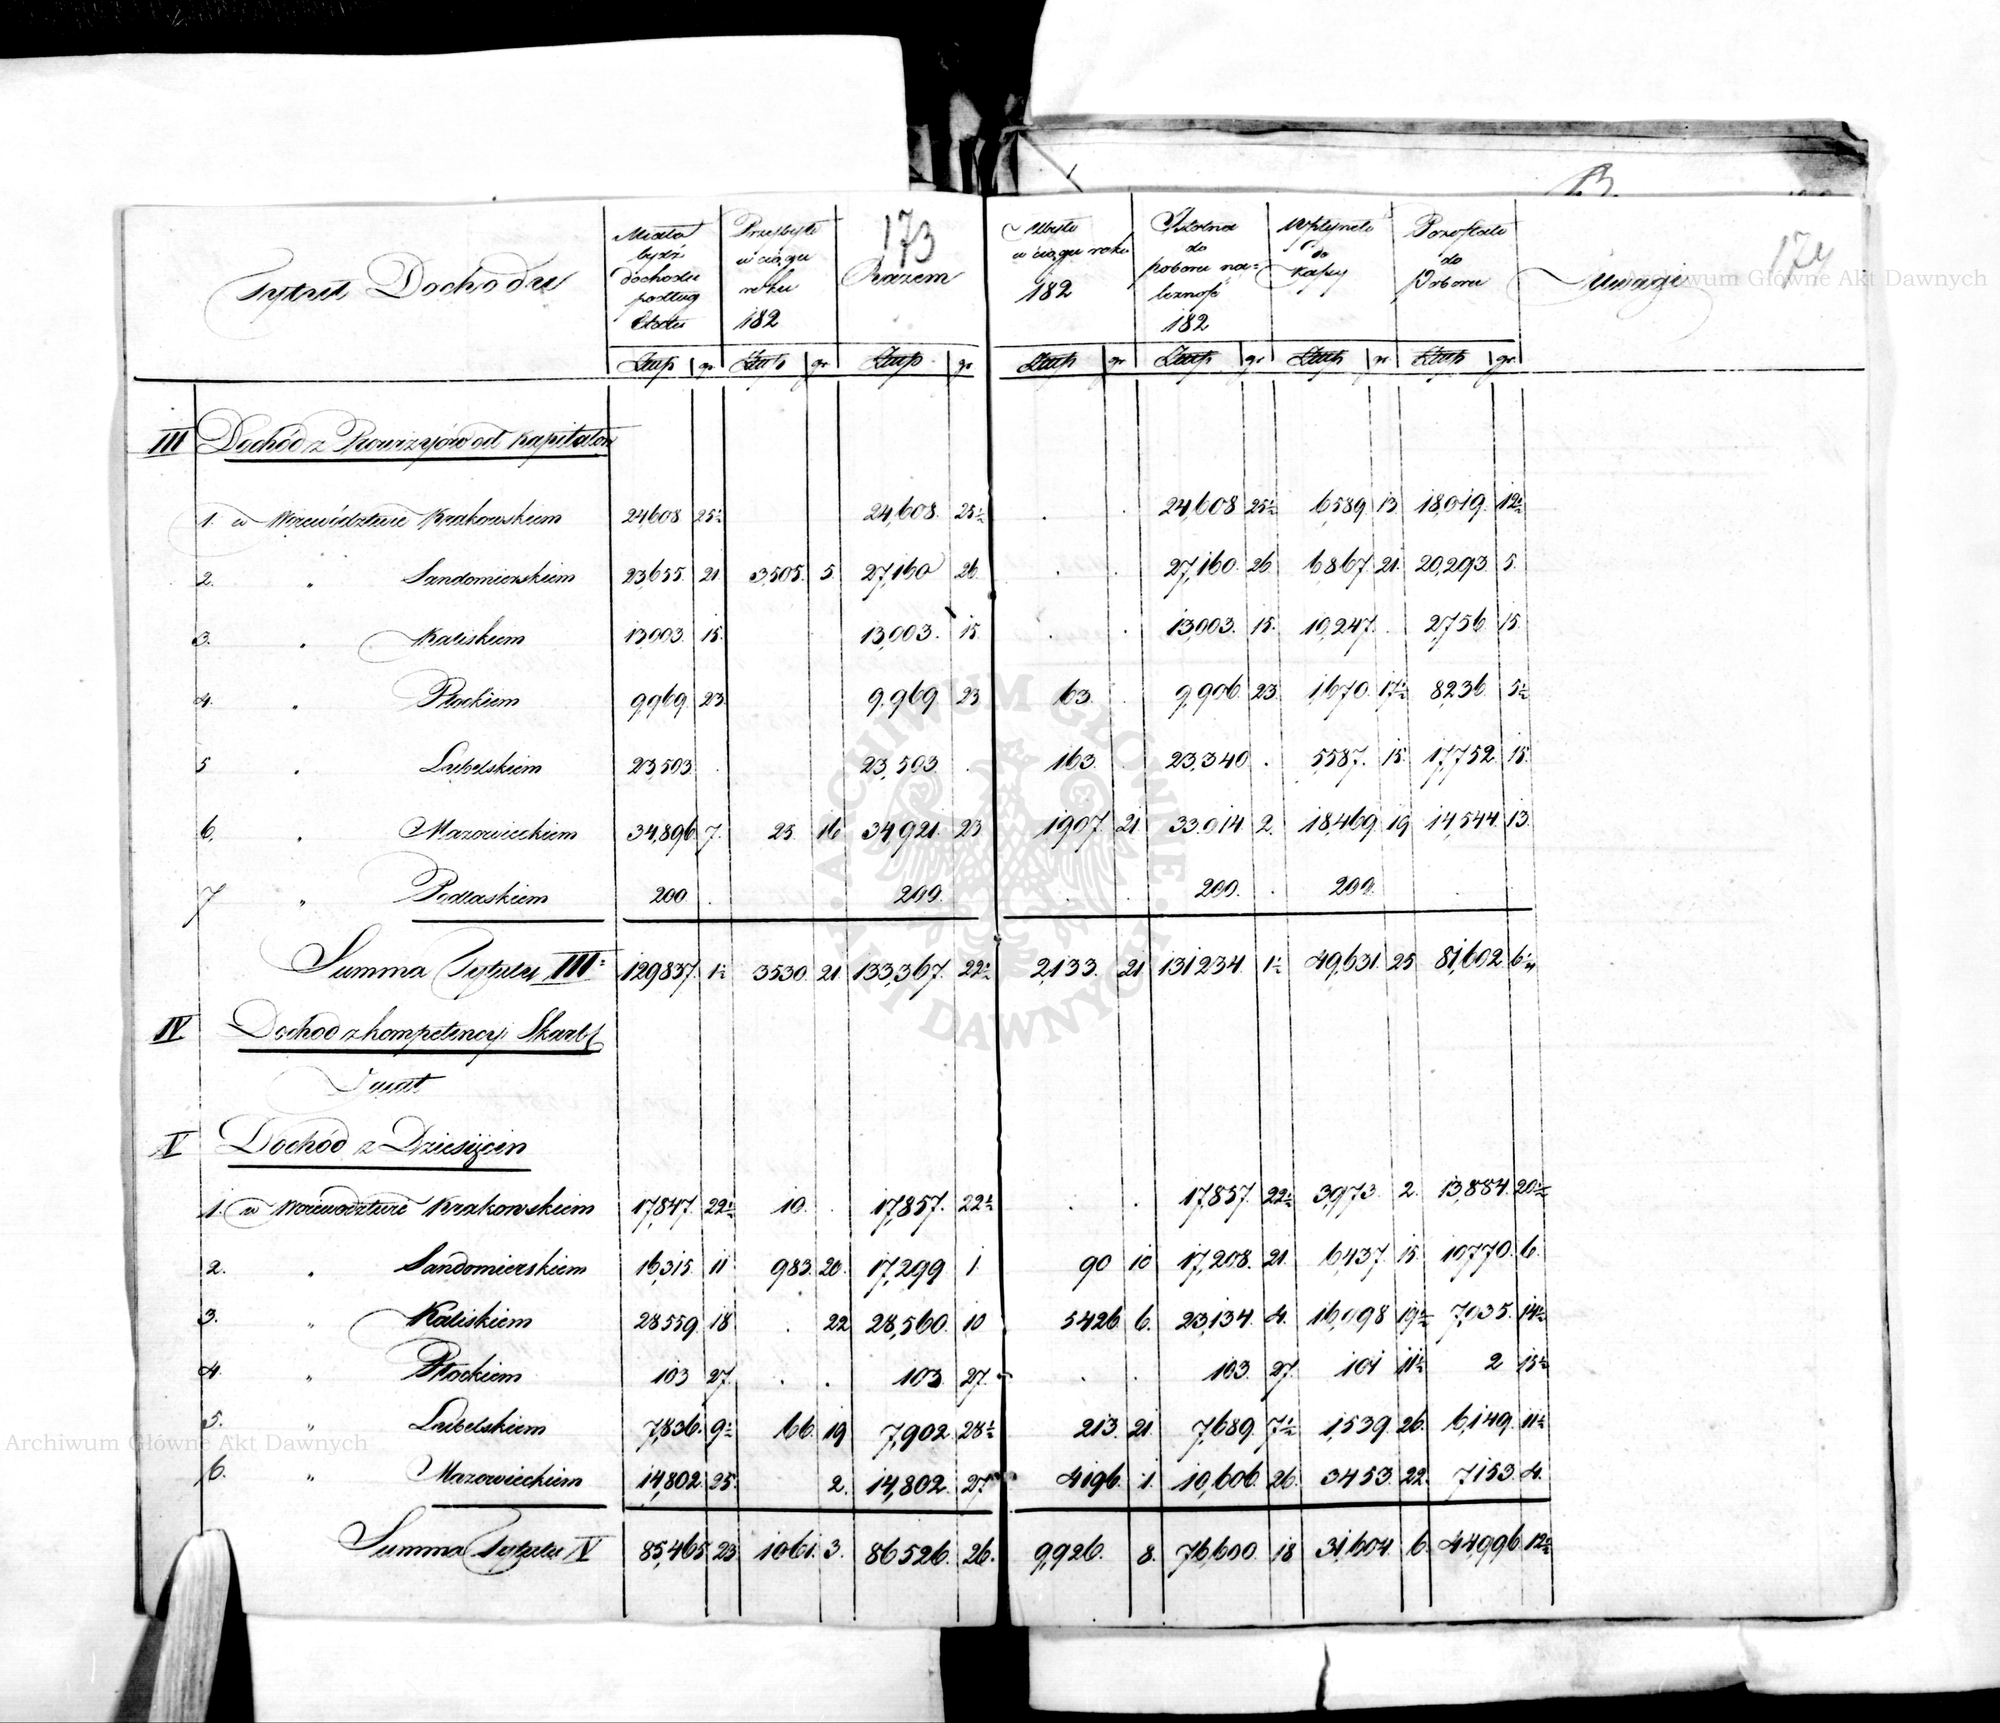 173
174
Tytuł Dochodu | Miało bydź dochodu podług Etatu | Przybyło w ciągu roku 182 | Razem | Ubyło w ciągu roku 182 | Istotna do poboru należność 182 | Wpłynęło do Kassy | Pozostało do Poboru | Uwagi
Złtup | gr | Złtup | gr | Złtup | gr | Złtup | gr | Złtup | gr | Złtup | gr | Złtup | gr
III Dochód z Prowizyów od Kapitałów
1. w Woiewództwie Krakowskiem | 24608 | 25½ | | | 24,608 | 25½ | . | . | 24,608 | 25½ | 6589 | 13 | 18,019 | 12½
2. " Sandomierskiem | 23,655 | 21 | 3,505 | 5 | 27,160 | 26 | . | . | 27,160 | 26 | 6867 | 21 | 20,293 | 5
3. " Kaliskiem | 13,003 | 15 | | | 13,003 | 15 | . | . | 13,003 | 15 | 10,247 | . | 2,756 | 15
4. " Płockiem | 9,969 | 23 | | | 9,969 | 23 | 63 | . | 9,906 | 23 | 1670 | 17½ | 8236 | 5½
5 " Lubelskiem | 23,503 | . | | | 23,503 | . | 163 | . | 23,340 | . | 5587 | 15 | 17,752 | 15
6. " Mazowieckiem | 34,896 | 7 | 25 | 16 | 34,921 | 23 | 1907 | 21 | 33,014 | 2 | 18,469 | 19 | 14,544 | 13
7 " Podlaskiem | 200 | . | | | 200 | | . | . | 200 | . | 200 | | . | .
Summa Tytułu III | 129837 | 1½ | 3530 | 21 | 133,367 | 22½ | 2,133 | 21 | 131234 | 1½ | 49,631 | 25 | 81,602 | 6½
IV Dochod z kompetencyi Skarb
Vacat
V Dochód z Dziesięcin
1. w Woiewództwie Krakowskiem | 17,847 | 22½ | 10 | . | 17,857 | 22½ | . | . | 17,857 | 22½ | 3,973 | 2 | 13,884 | 20½
2. " Sandomierskiem | 16,315 | 11 | 983 | 20 | 17,299 | 1 | 90 | 10 | 17,208 | 21 | 6,437 | 15 | 10770 | 6
3. " Kaliskiem | 28559 | 18 | . | 22 | 28,560 | 10 | 5426 | 6 | 23,134 | 4 | 16,098 | 19½ | 7,035 | 14½
4. " Płockiem | 103 | 27 | . | . | 103 | 27 | . | . | 103 | 27 | 101 | 11½ | 2 | 15½
5. " Lubelskiem | 7,836 | 9½ | 66 | 19 | 7,902 | 28½ | 213 | 21 | 7,689 | 7½ | 1,539 | 26 | 6,149 | 11½
6. " Mazowieckiem | 14,802 | 25 | | 2 | 14,802 | 27 | 4196 | 1 | 10,606 | 26 | 3453 | 22 | 7153 | 4
Summa Tytułu V | 85,465 | 23 | 1061 | 3 | 86526 | 26 | 9,926 | 8 | 76,600 | 18 | 31,604 | 6 | 44,996 | 12½
Archiwum Główne Akt Dawnych
Archiwum Główne Akt Dawnych
ARCHIWUM GŁÓWNE AKT DAWNYCH